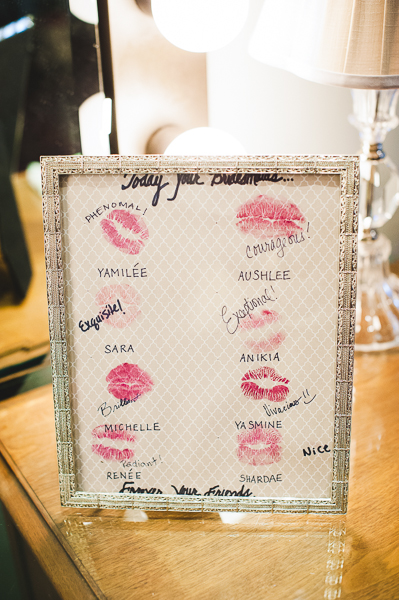 Today Your Bridesmaids...
PHENOMAL!
YAMILÉE
Courageous!
AUSHLEE
Exquisite!
SARA
Exceptional!
ANIKIA
Brilliant
MICHELLE
Vivacious!!
YASMINE
radiant!
RENÉE
Nice
SHARDAE
Forever Your Friends